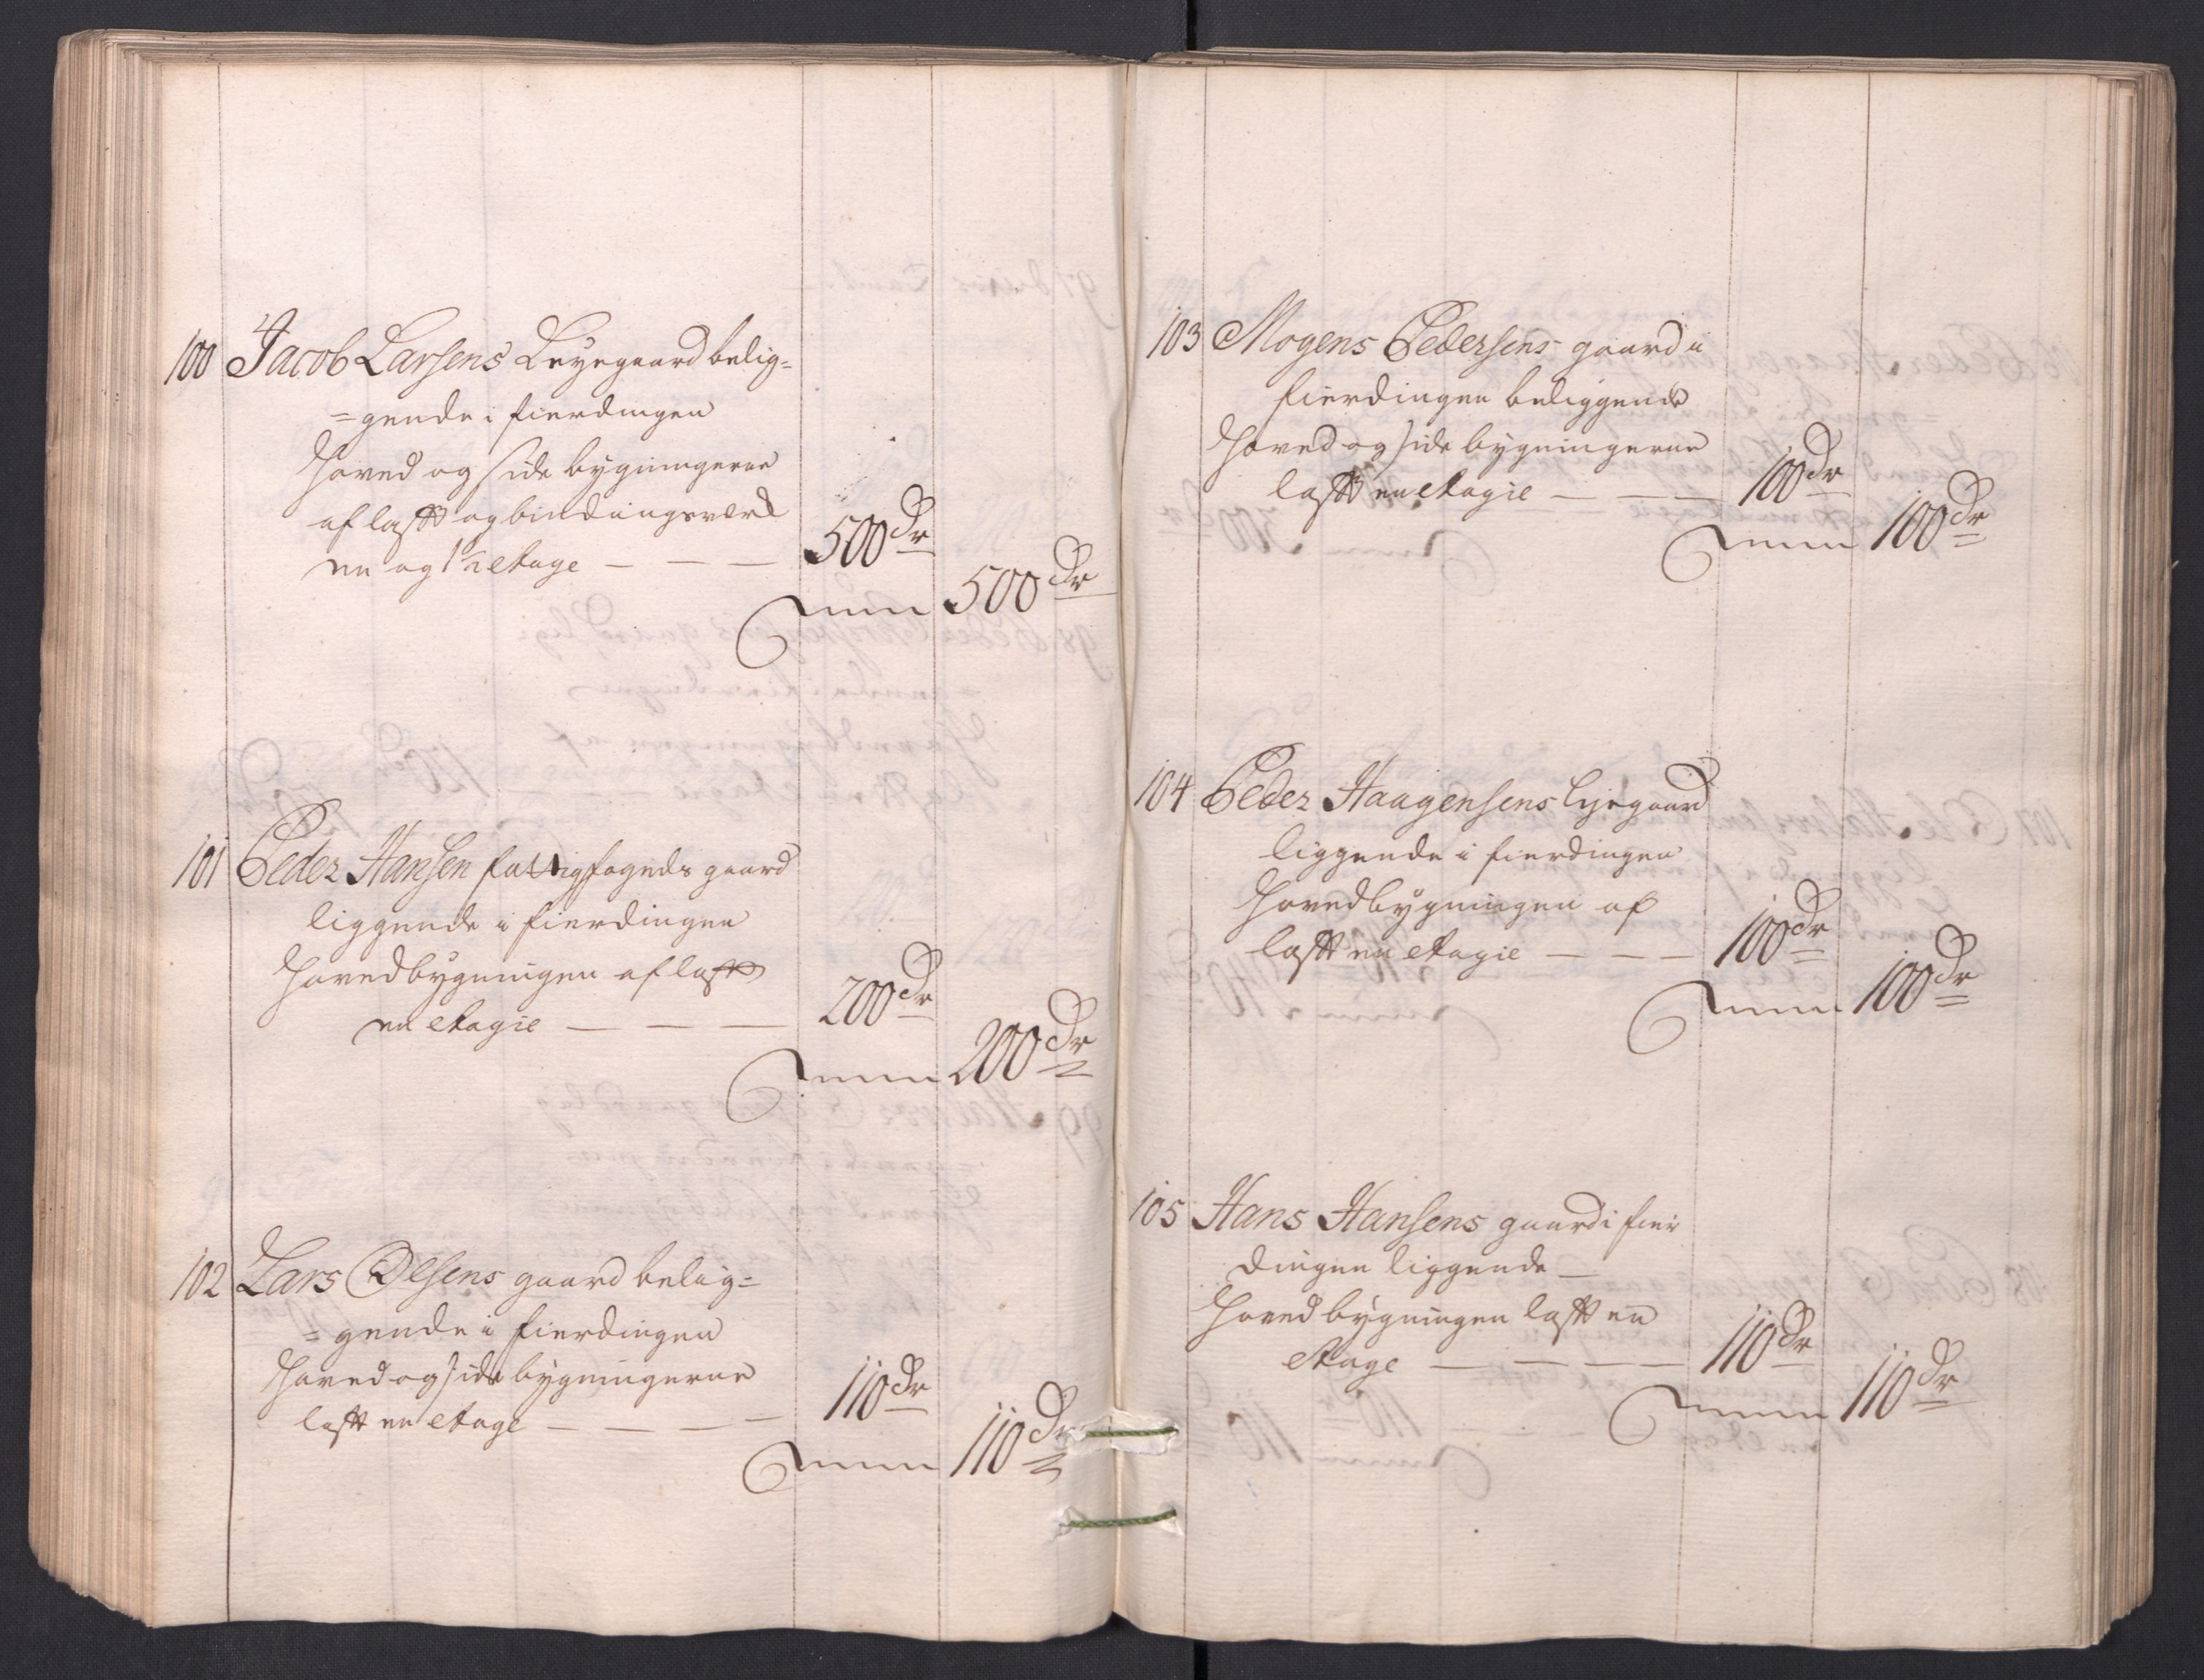 100 Jacob Larsens Leyegaard belig=
=gende i fierdingen
Hoved og side bygningerne
af lafft og bindingsverk
en og 1½ etage — — — 500 Dr
Summa 500 Dr
101 Peder Hansen fattigfogeds gaard
liggende i fierdingen
Hovedbygningen af lafft
en etagie — — — 200 Dr
Summa 200 Dr
102 Lars Olsens gaard belig=
=gende i fierdingen
Hoved og side bygningerne
lafft en etage — — — — 110 Dr
Summa 110 Dr
103 Mogens Pedersens gaard i
fierdingen beliggende
Hoved og side bygningerne
lafft en etagie — — — 100 Dr
Summa 100 Dr
104 Peder Haagensens lejegaard
liggende i fierdingen
Hovedbygningen af
lafft en etagie — — — 100 Dr
Summa 100 Dr
105 Hans Hansens gaard i fier
dingen liggende —
Hoved bygningen lafft en
etage — — — — 110 Dr
Summa 110 Dr